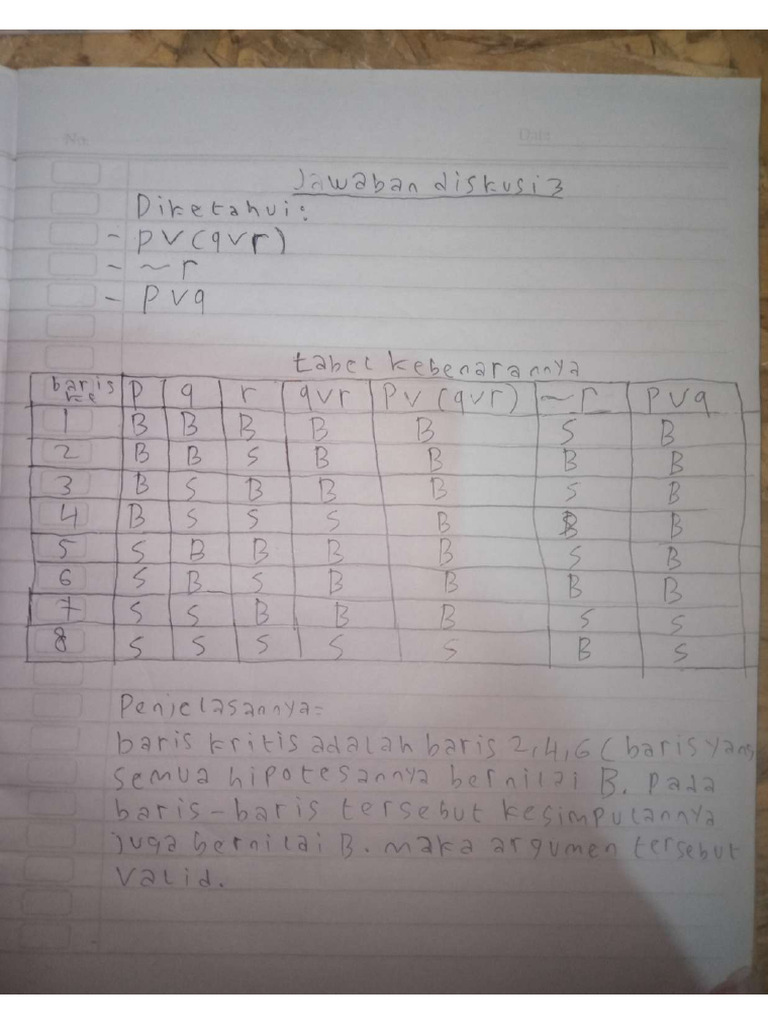 No.
Date
Jawaban diskusi 3
Diketahui:
- p∨(q∨r)
- ~r
- p∨q
tabel kebenarannya
baris ke p q r q∨r p∨(q∨r) ~r p∨q
1 B B B B B S B
2 B B S B B B B
3 B S B B B S B
4 B S S S B B B
5 S B B B B S B
6 S B S B B B B
7 S S B B B S S
8 S S S S S B S
Penjelasannya=
baris kritis adalah baris 2,4,6 (baris yang
semua hipotesannya bernilai B. pada
baris-baris tersebut kesimpulannya
juga bernilai B. maka argumen tersebut
valid.